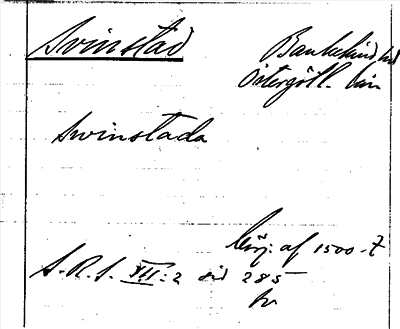 Svinstad
Bankekind hd
Östergötl. län
Swinstada
börj. af 1500-t
S.R.S. III:2 sid 285